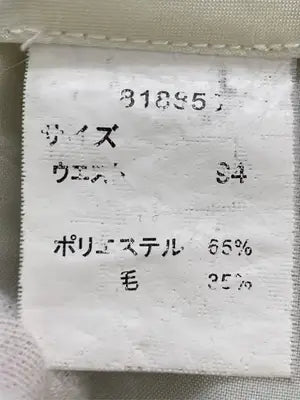 サイズ
ウエスト
ポリエステル 65%
毛 35%